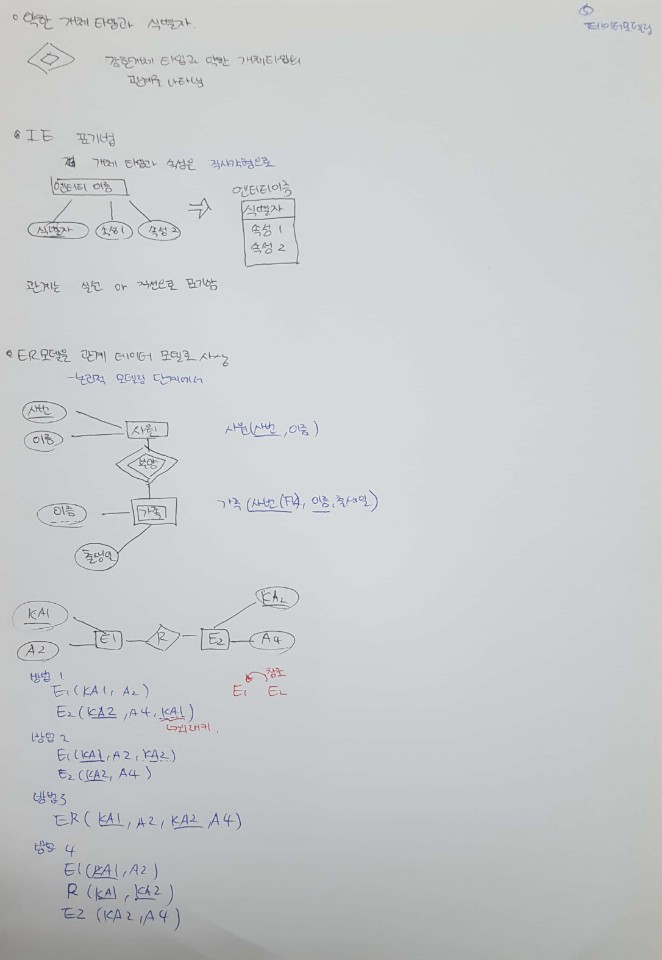 ⑤
데이터모델링
• 약한 개체 타입과 식별자.
강한개체 타입과 약한 개체타입의
관계를 나타냄
• IE 표기법
개체 타입과 속성은 직사각형으로
엔터티 이름
식별자 속성1 속성2
⇒
엔터티이름
식별자
속성 1
속성 2
관계는 실선 or 점선으로 표기함
• ER모델을 관계 데이터 모델로 사상
- 논리적 모델링 단계에서
사번
이름
사원
부양
이름
가족
출생일
사원(사번, 이름)
가족 (사번(FK), 이름, 출생일)
KA1
A2
E1
R
E2
KA2
A4
방법 1
E1(KA1, A2)
E2(KA2, A4, KA1)
외래키.
참조
E1 E2
방법 2
E1(KA1, A2, KA2)
E2(KA2, A4)
방법3
ER(KA1, A2, KA2, A4)
방법 4
E1(KA1, A2)
R(KA1, KA2)
E2(KA2, A4)